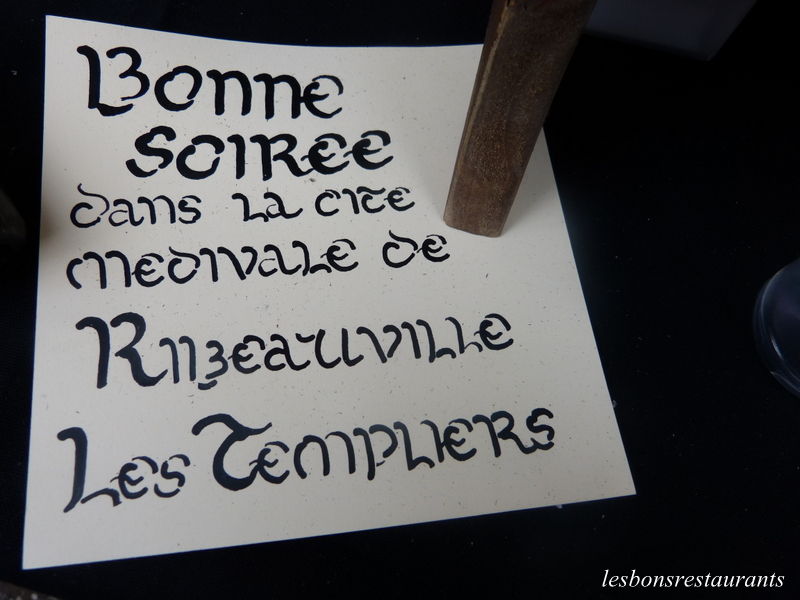 Bonne
soiree
dans la cite
medivale de
Ribeauville
Les Templiers
lesbonsrestaurants